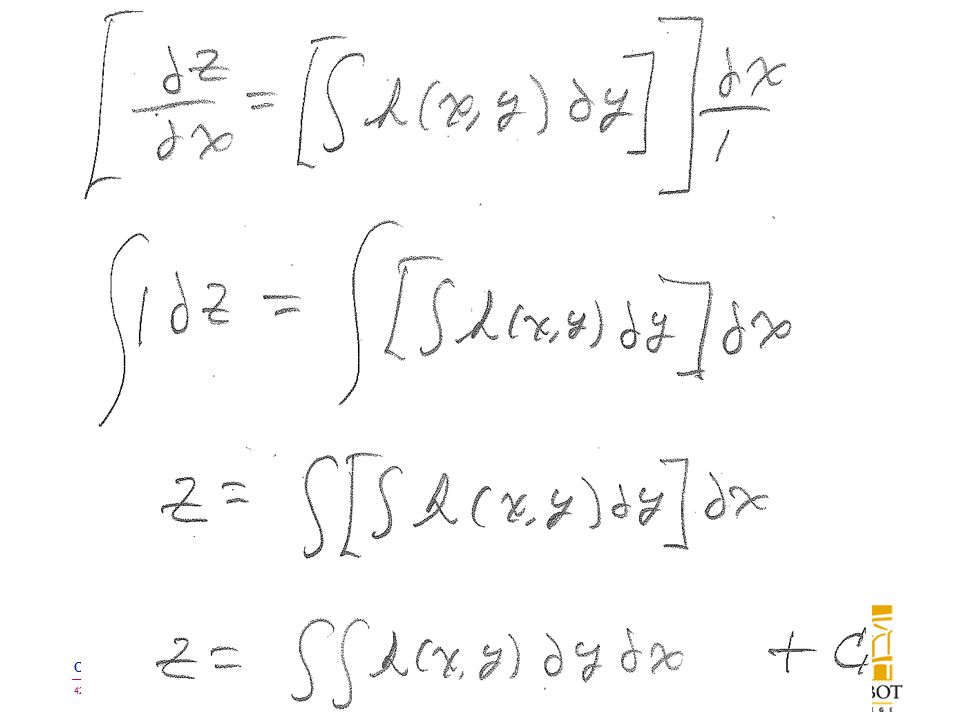 [ ∂z/∂x = [∫ h(x,y) ∂y] ] ∂x/1
∫ 1 ∂z = ∫ [∫ h(x,y) ∂y] ∂x
z = ∫ [∫ h(x,y) ∂y] ∂x
z = ∫∫ h(x,y) ∂y ∂x + C
BOT
IGE